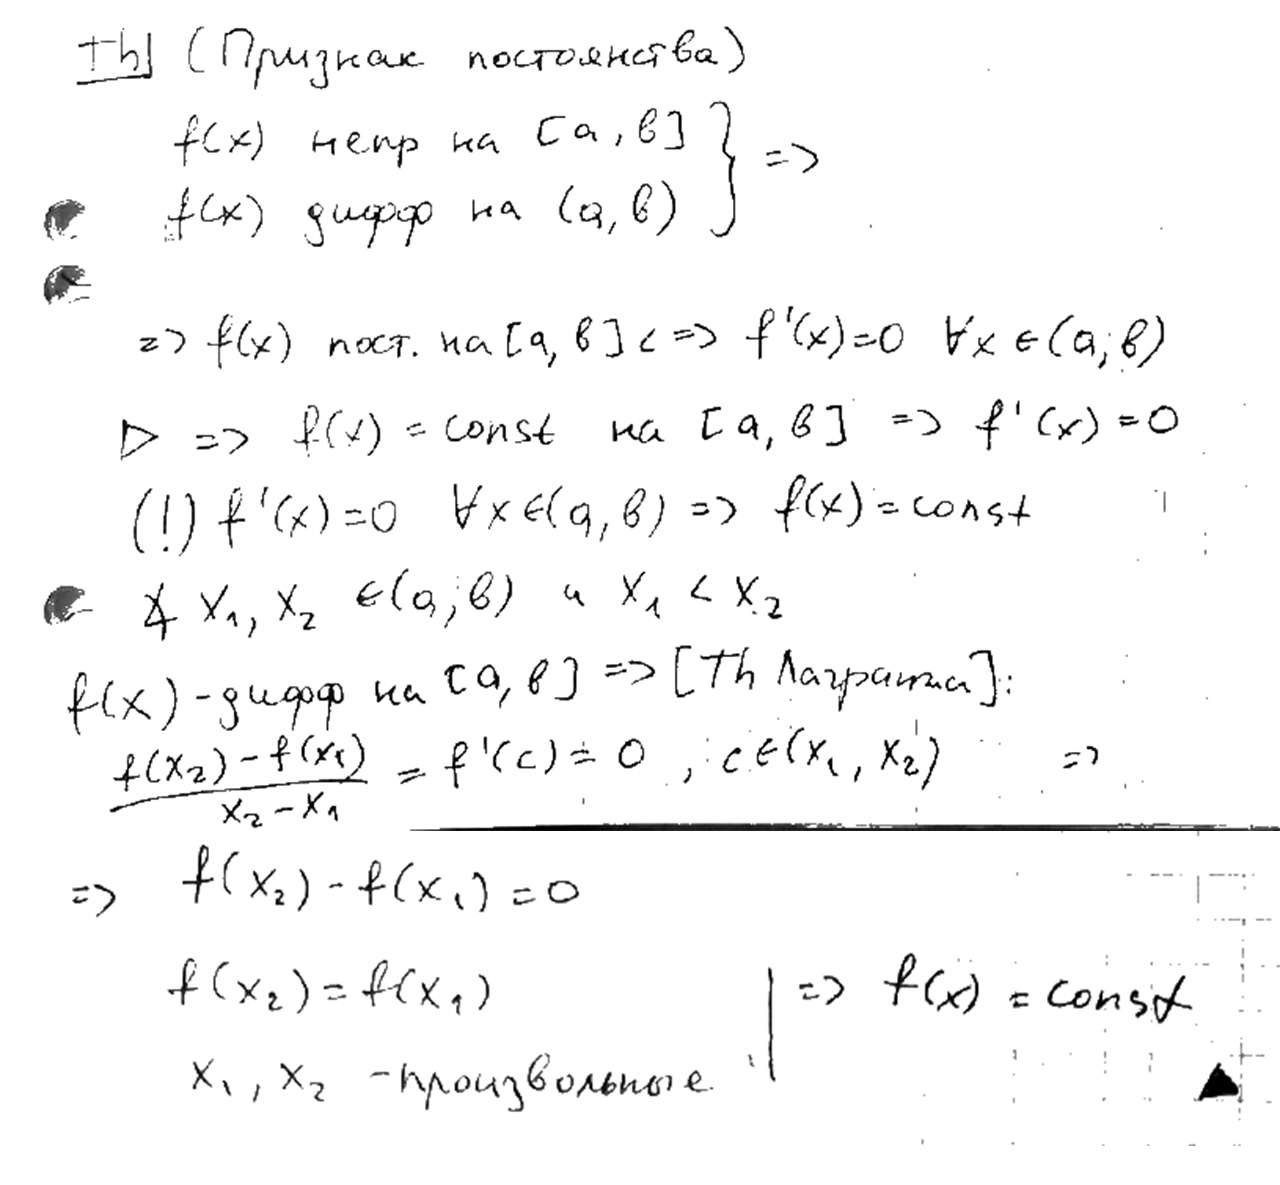 Th (Признак постоянства)
f(x) непр на [a, b] }
f(x) дифф на (a, b) } =>
=> f(x) пост. на [a, b] <=> f'(x)=0 ∀x ∈(a; b)
▷ => f(x) = const на [a, b] => f'(x)=0
(!) f'(x)=0 ∀x∈(a, b) => f(x)=const
∡ x₁, x₂ ∈(a; b) и x₁ < x₂
f(x)-дифф на [a, b] => [Th Лагранжа]:
(f(x₂)-f(x₁))/(x₂-x₁) = f'(c) = 0, c∈(x₁, x₂) =>
=> f(x₂)-f(x₁)=0
f(x₂)=f(x₁)
x₁, x₂ -произвольные | => f(x) = const
▲